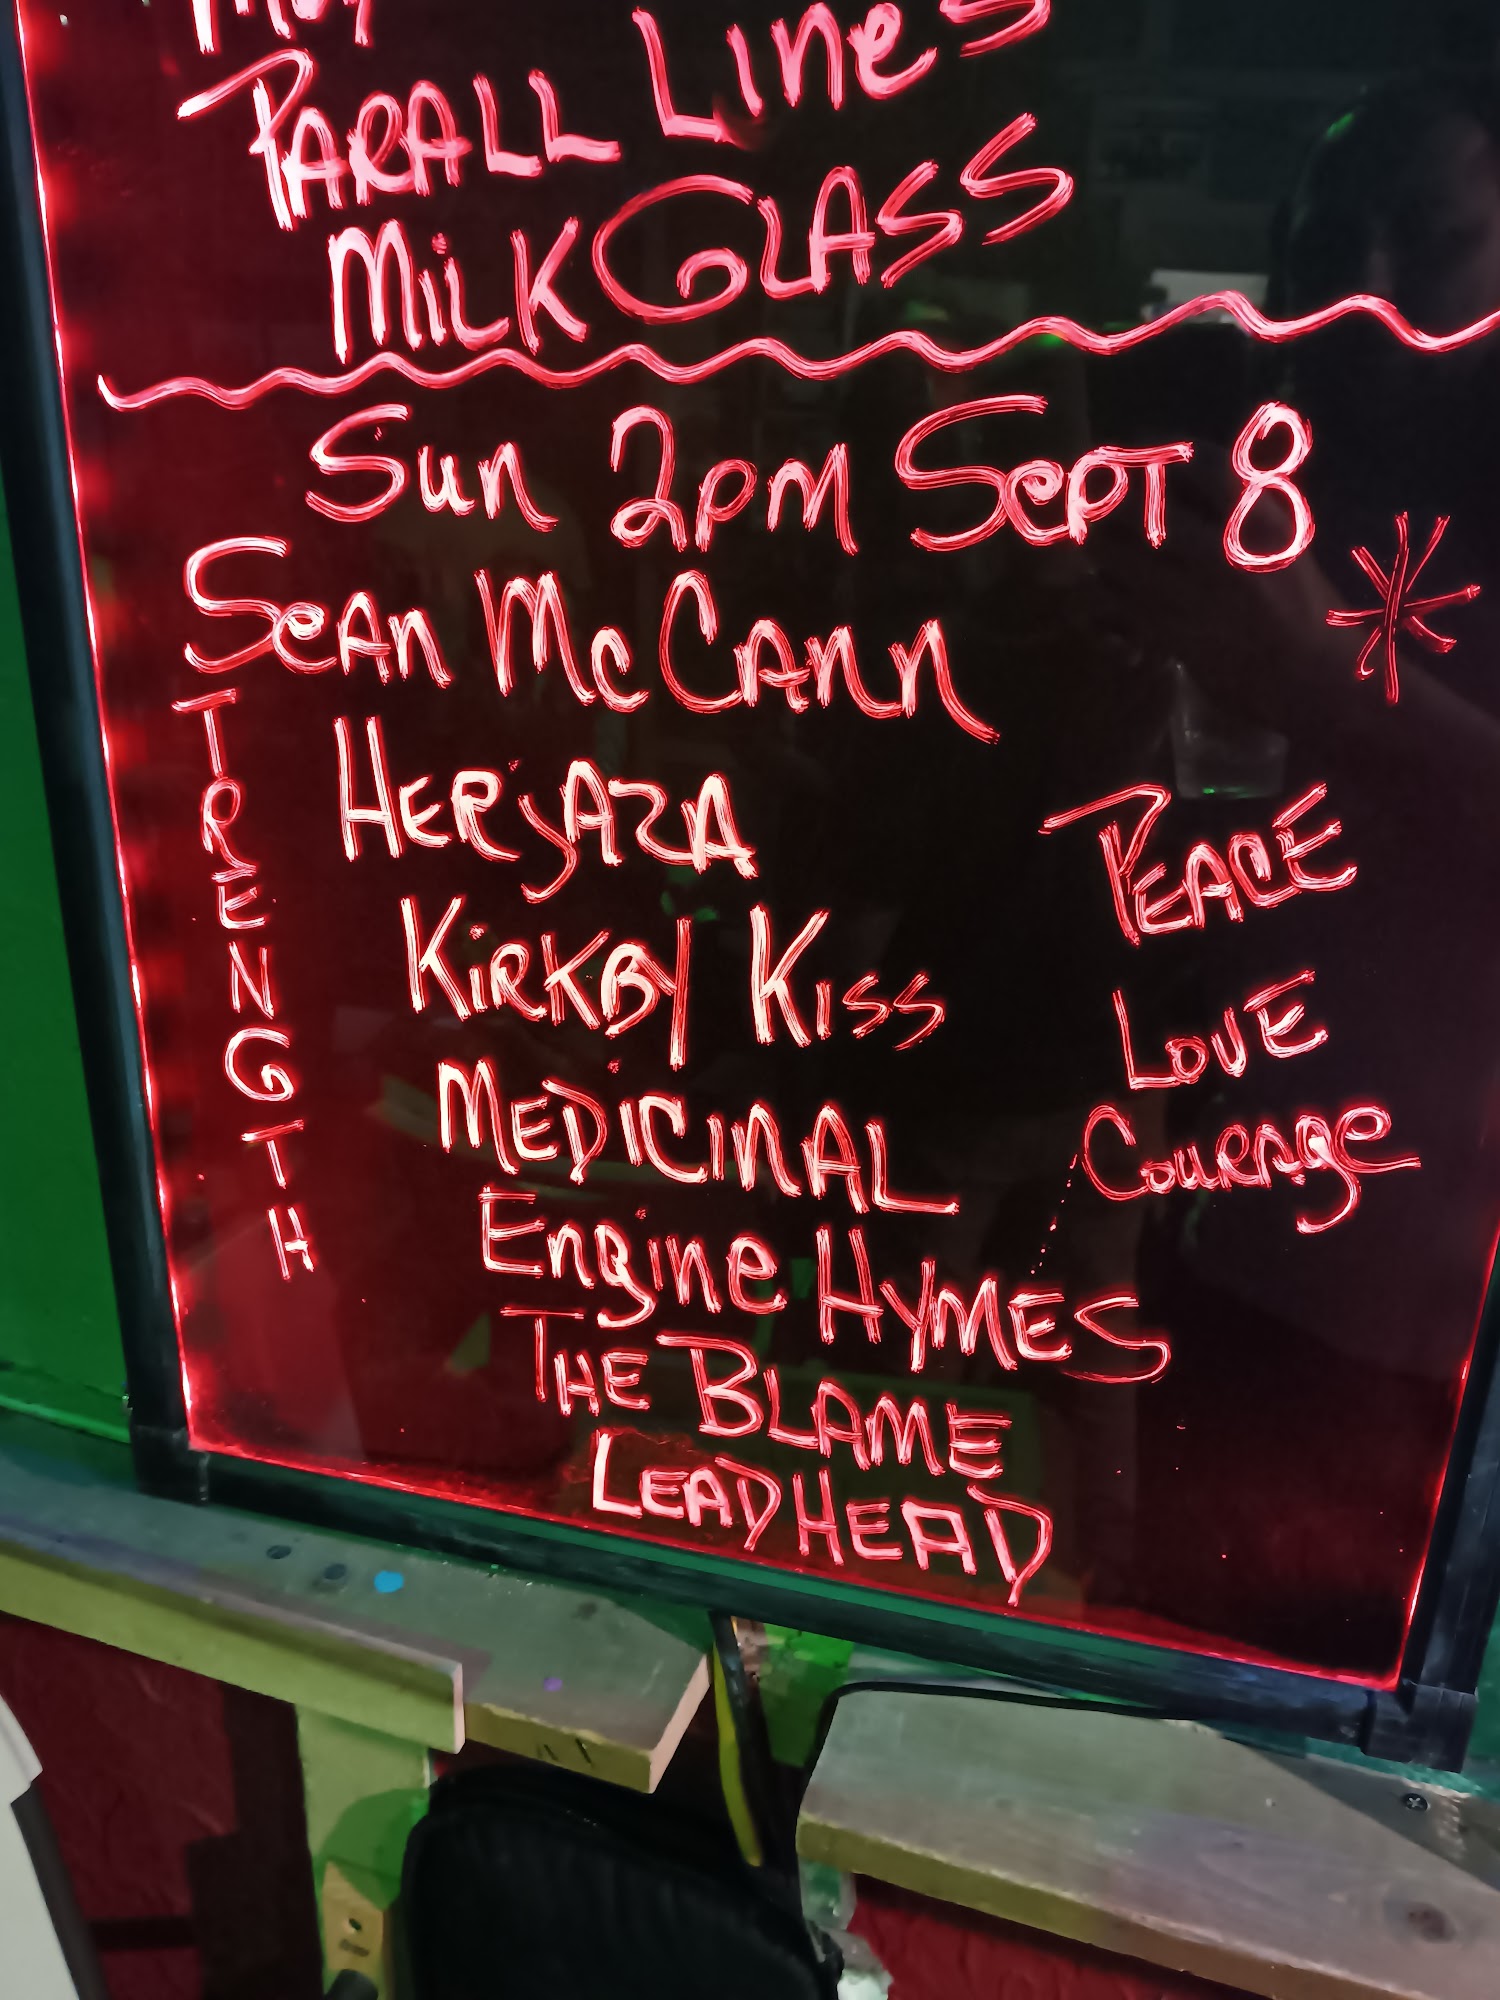 PARALL LineS
MiLK GLASS
Sun 2pm SePT 8
SeAn McCAnn
STRENGTH
HERjAZA
KiRKBY KiSS
MEDICINAL
Engine HYMES
THE BLAME
LEADHEAD
PEACE
LOVE
Courage